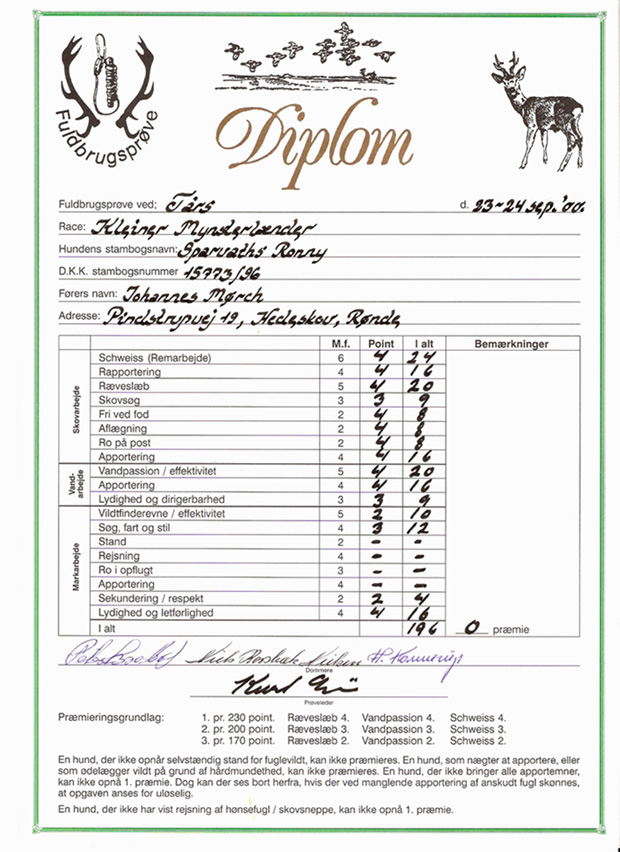 Fuldbrugsprøve
Diplom
Fuldbrugsprøve ved; Tårs d. 23-24 sep.'00.
Race: Kleiner Mynsterlænder
Hundens stambogsnavn: Sparvaths Ronny
D.K.K. stambogsnummer 15773/96
Førers navn: Johannes Mørch
Adresse: Pindstrupvej 19, Hedeskov, Rønde
M.f. Point I alt Bemærkninger
Skovarbejde
Schweiss (Remarbejde) 6 4 24
Rapportering 4 4 16
Ræveslæb 5 4 20
Skovsøg 3 3 9
Fri ved fod 2 4 8
Aflægning 2 4 8
Ro på post 2 4 8
Apportering 4 4 16
Vand-arbejde
Vandpassion / effektivitet 5 4 20
Apportering 4 4 16
Lydighed og dirigerbarhed 3 3 9
Markarbejde
Vildtfinderevne / effektivitet 5 2 10
Søg, fart og stil 4 3 12
Stand 2 - -
Rejsning 4 - -
Ro i opflugt 3 - -
Apportering 4 - -
Sekundering / respekt 2 2 4
Lydighed og letførlighed 4 4 16
I alt 196 0 præmie
Dommere
Prøveleder
Præmieringsgrundlag: 1. pr. 230 point. Ræveslæb 4. Vandpassion 4. Schweiss 4.
2. pr. 200 point. Ræveslæb 3. Vandpassion 3. Schweiss 3.
3. pr. 170 point. Ræveslæb 2. Vandpassion 2. Schweiss 2.
En hund, der ikke opnår selvstændig stand for fuglevildt, kan ikke præmieres. En hund, som nægter at apportere, eller
som ødelægger vildt på grund af hårdmundethed, kan ikke præmieres. En hund, der ikke bringer alle apportemner,
kan ikke opnå 1. præmie. Dog kan der ses bort herfra, hvis der ved manglende apportering af anskudt fugl skønnes,
at opgaven anses for uløselig.
En hund, der ikke har vist rejsning af hønsefugl / skovsneppe, kan ikke opnå 1. præmie.